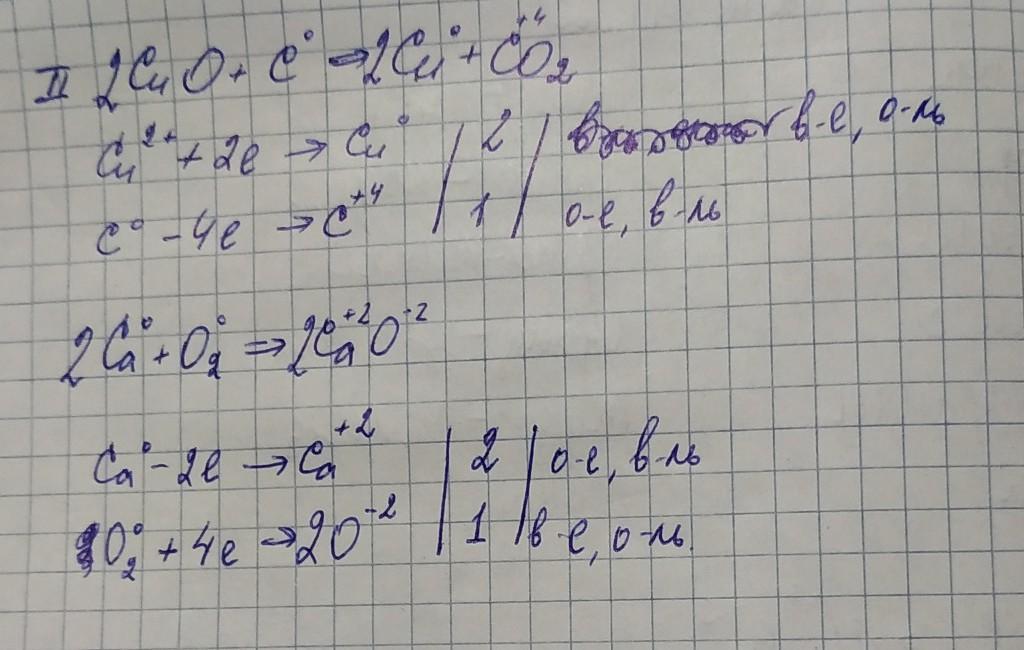 II 2CuO + C⁰ → 2Cu⁰ + C⁺⁴O₂
Cu²⁺ + 2e → Cu⁰ | 2 | в-е, о-ль
C⁰ - 4e → C⁺⁴ | 1 | о-е, в-ль
2Ca⁰ + O₂⁰ ⇒ 2Ca⁺²O⁻²
Ca⁰ - 2e → Ca⁺² | 2 | о-е, в-ль
O₂⁰ + 4e → 2O⁻² | 1 | в-е, о-ль